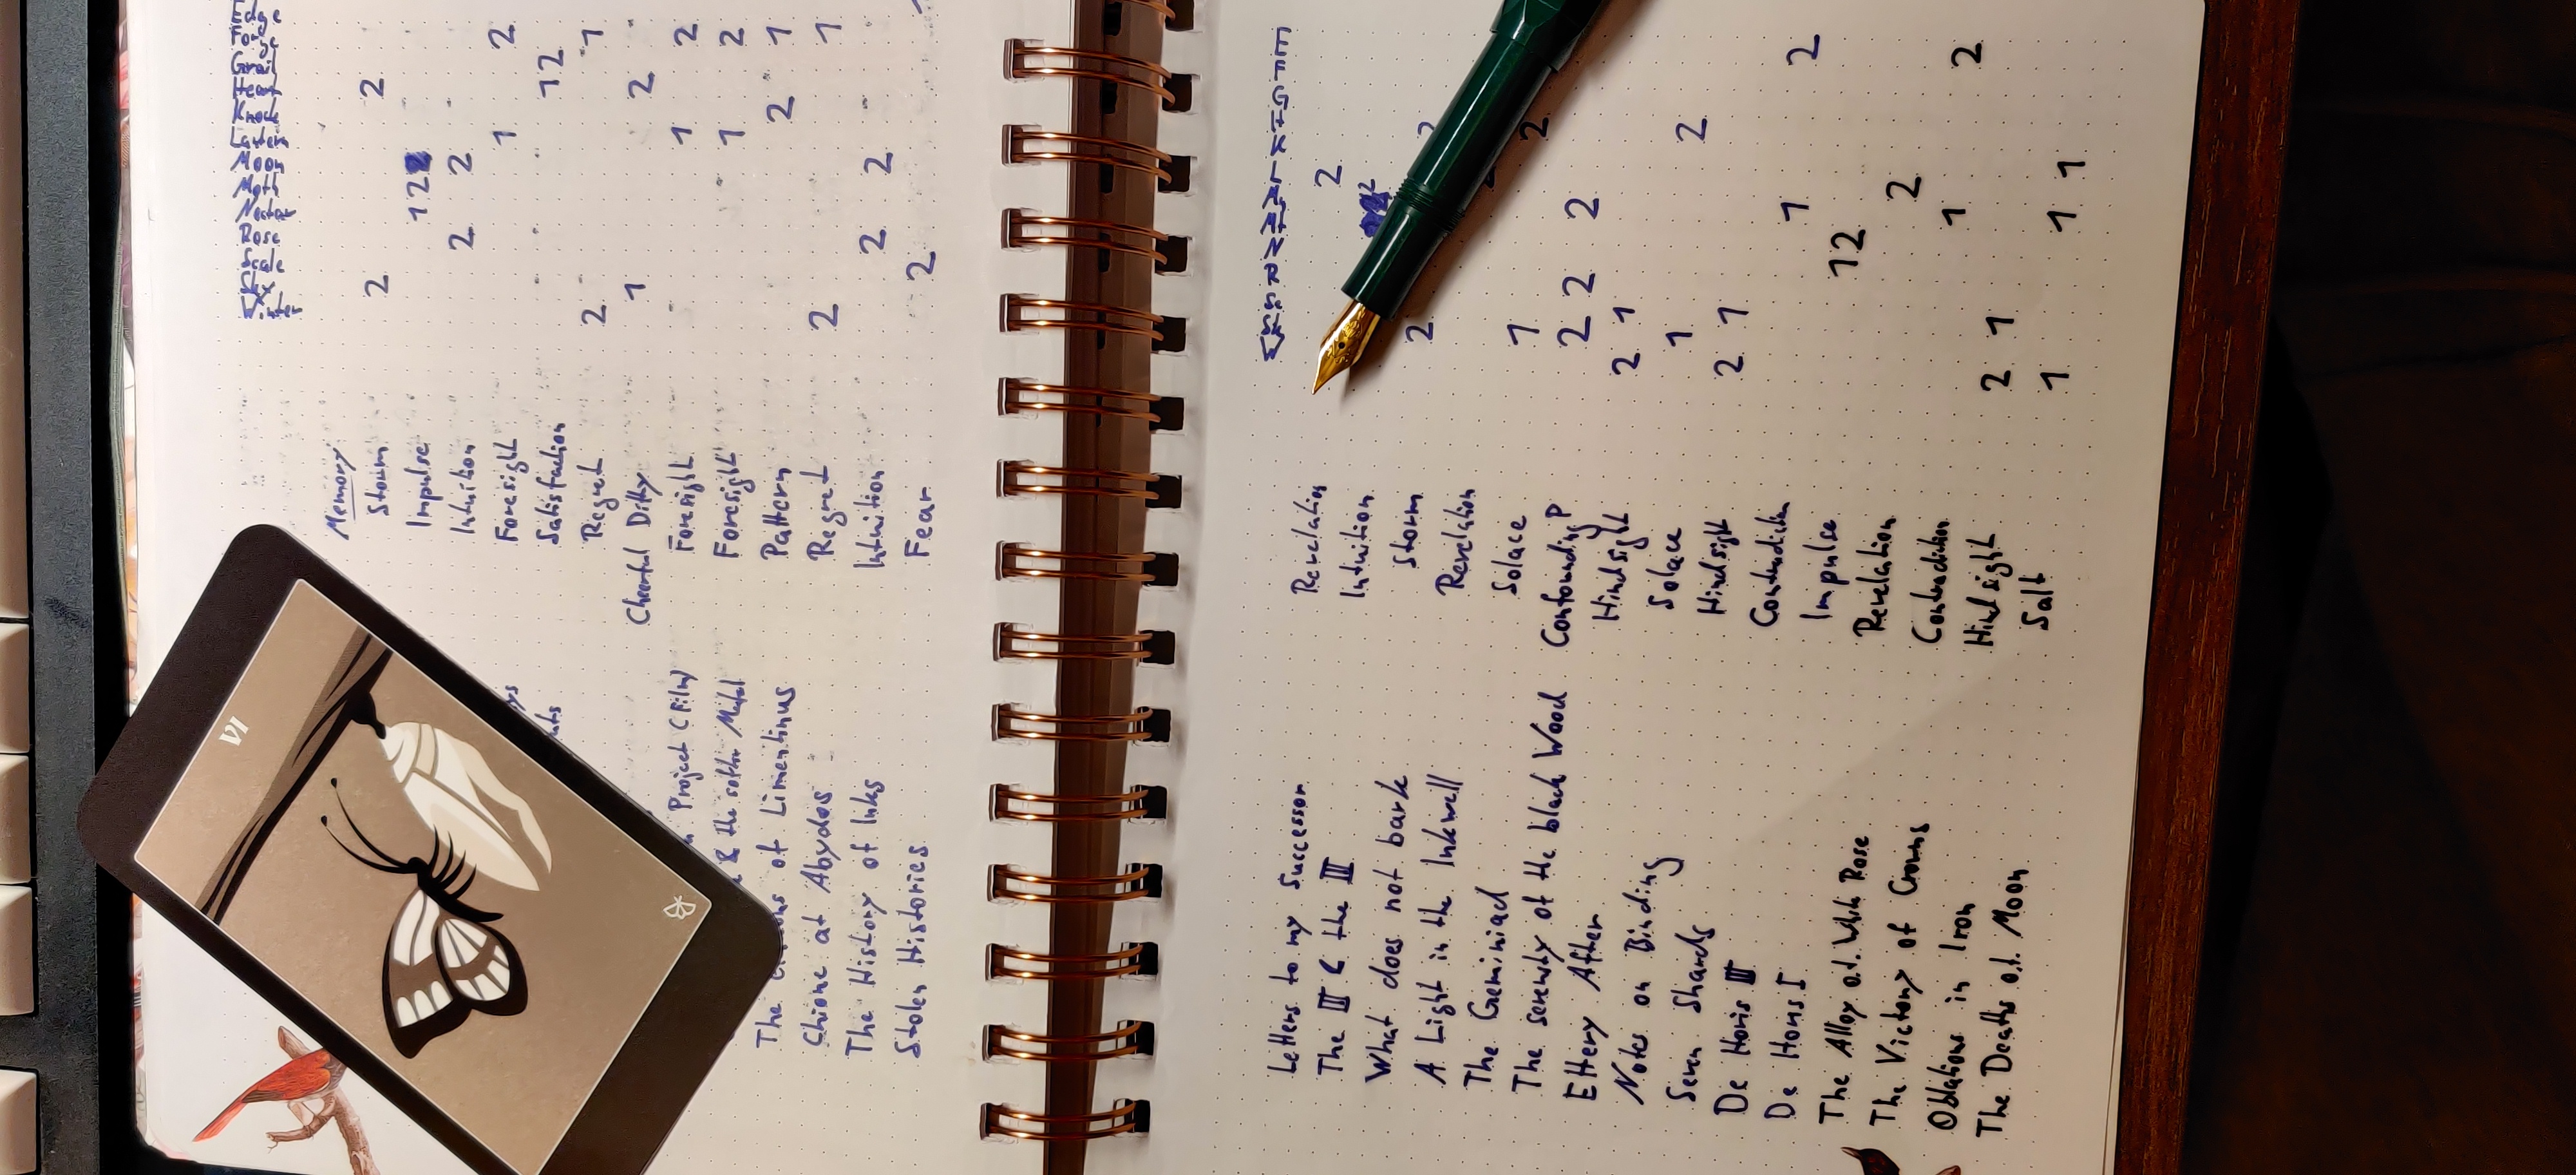 Edge
Forge
Grail
Heart
Knock
Lantern
Moon
Moth
Nectar
Rose
Scale
Sky
Winter
Memory
Storm 2 2
Impulse 1 2
Intuition 2 2
Foresight 1 2
Satisfaction 1 2
Regret 2 1
Cheerful Ditty 1 2
Project (Film) Foresight 1 2
& the Foresight 1 2
The of Limentinus Pattern 2 1
Chione at Abydos Regret 2 1
The History of Inks Intuition 2 2
Stolen Histories Fear 2
VI
Letters to my Successor Revelation 2
The III & the III Intuition 2
What does not bark Storm 2 2
A Light in the Inkwell Revelation
The Geminiad Solace 1 2
The serenity of the black Wood Confounding P 2 2 2
Ettery After Hindsight 2 1
Notes on Binding Solace 1 2
Seven Shards Hindsight 2 1
De Horis III Contradiction 1 2
De Horis I Impulse 1 2
The Alloy o.t. White Rose Revelation 2
The Victory of Crowns Contradiction 1 2
Oblations in Iron Hindsight 2 1
The Deaths o.t. Moon Salt 1 1 1